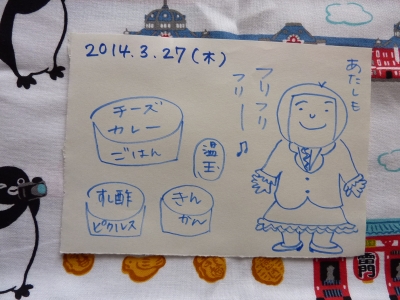 2014.3.27(木)
あたしも
フリフリ
フリー♪
チーズ
カレー
ごはん
温玉
すし酢
ピクルス
きん
かん
雷門